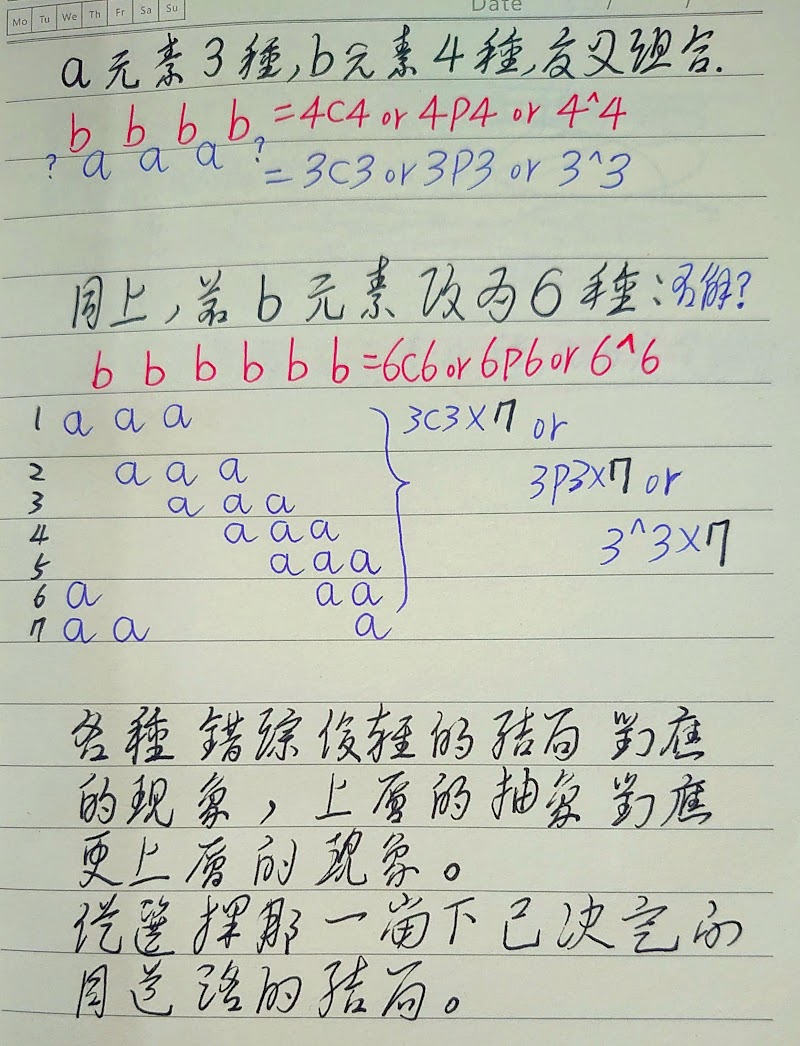 Mo Tu We Th Fr Sa Su
Date / /
a元素3種,b元素4種,交叉組合.
b b b b =4C4 or 4P4 or 4^4
? a a a ? = 3C3 or 3P3 or 3^3
同上,若b元素改為6種:有解?
b b b b b b =6C6 or 6P6 or 6^6
1 a a a 3C3×7 or
2 a a a 3P3×7 or
3 a a a
4 a a a 3^3×7
5 a a a
6 a a a
7 a a a
各種錯踪復雜的結局對應
的現象,上層的抽象對應
更上層的現象。
從選擇那一崗下已決定不
同道路的結局。